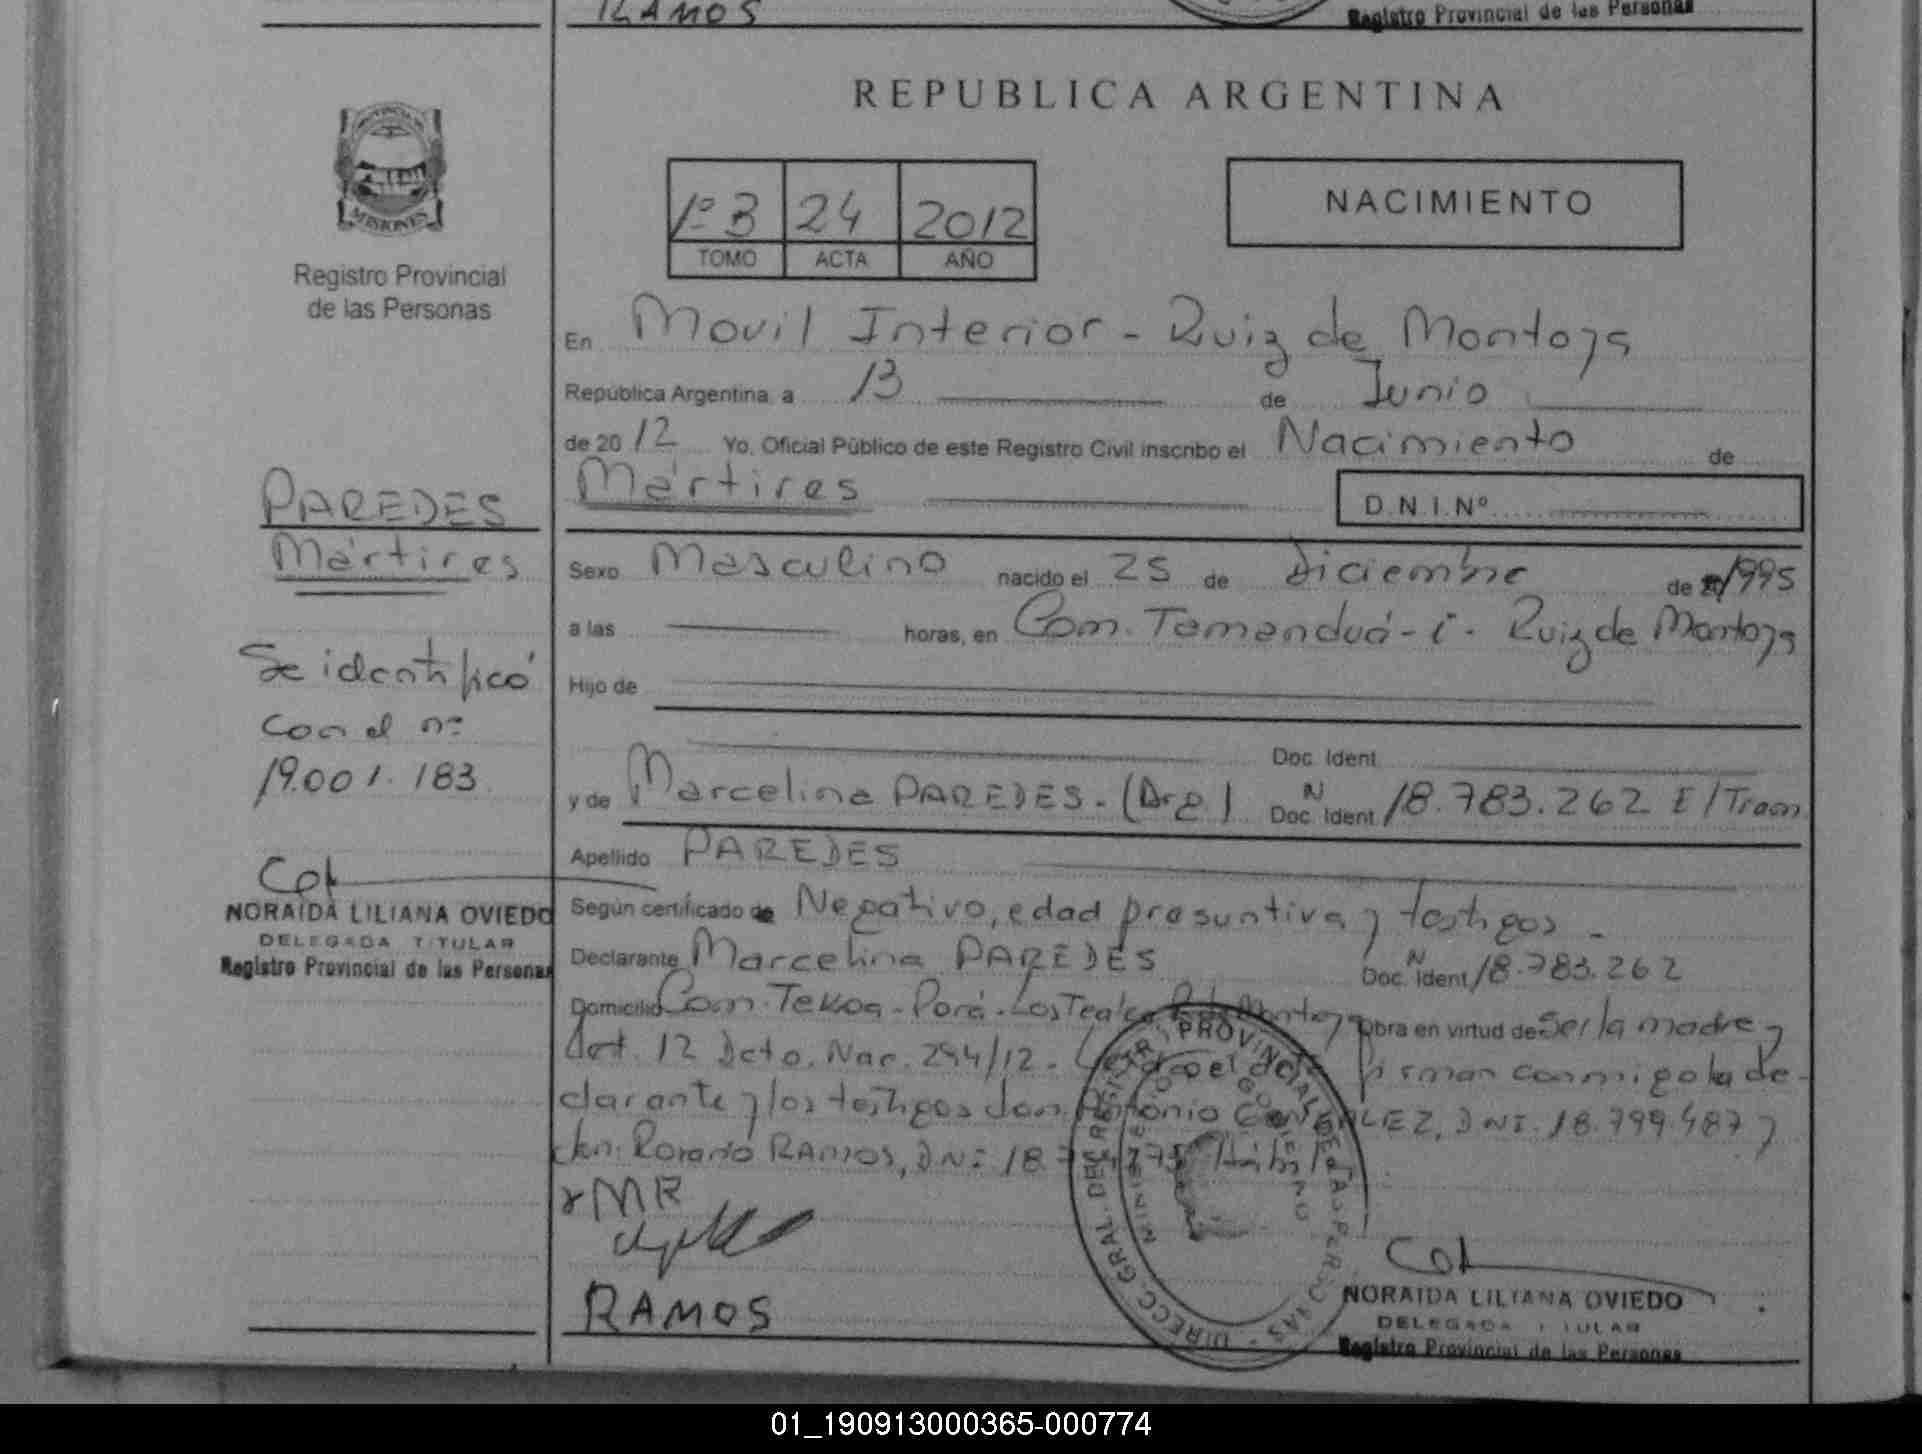 RAMOS
Registro Provincial de las Personas
REPUBLICA ARGENTINA
PROVINCIA DE
MISIONES
Registro Provincial
de las Personas
1º 3 24 2012
TOMO ACTA AÑO
NACIMIENTO
En Movil Interior - Ruiz de Montoya
República Argentina, a 13 de Junio
de 2012 Yo, Oficial Público de este Registro Civil inscribo el Nacimiento de
Mártires
D.N.I.Nº
PAREDES
Mártires
Sexo Masculino nacido el 25 de Diciembre de 1995
a las horas, en Com. Tamanduá - i - Ruiz de Montoya
Se identificó
con el nº
19.001.183
Hijo de
Doc. Ident.
y de Marcelina PAREDES - (Arg) Doc. Ident. N 18.783.262 E/Tram
Apellido PAREDES
NORAIDA LILIANA OVIEDO
DELEGADA TITULAR
Registro Provincial de las Personas
Según certificado de Negativo, edad presuntiva y testigos -
Declarante Marcelina PAREDES Doc. Ident. N 18.783.262
Domicilio Com. Tekoa - Porá - Montoya Obra en virtud de Ser la madre y
Art. 12 Dcto. Nac. 294/12 - firman conmigo la de-
clarante y los testigos don Antonio GONZALEZ, DNI. 18.799.487 y
don Rosario RAMOS, DNI 18. Hábiles
MR
RAMOS
DIRECC. GRAL. DEL REGISTRO PROVINCIAL DE LAS PERSONAS
MINISTERIO DE GOBIERNO
NORAIDA LILIANA OVIEDO
DELEGADA TITULAR
Registro Provincial de las Personas
01_190913000365-000774